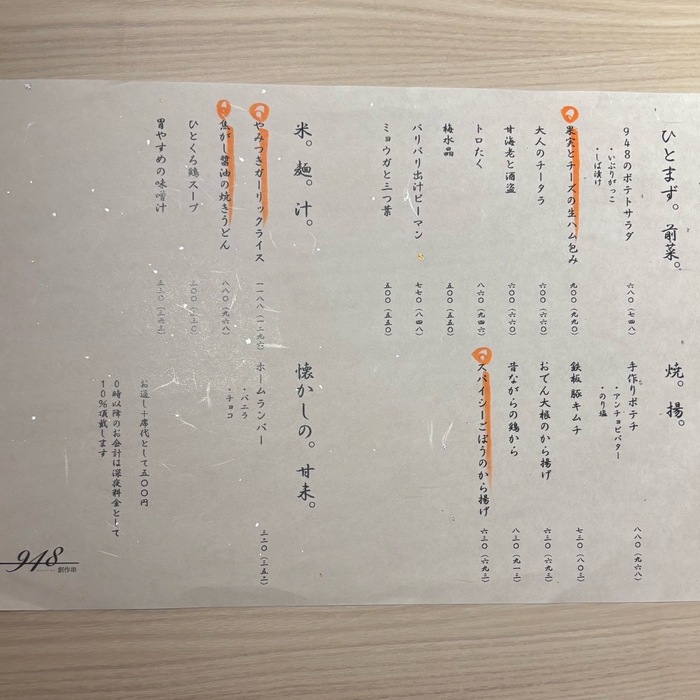 ひとまず。前菜。
948のポテトサラダ 六八〇(七四八)
・いぶりがっこ
・しば漬け
果実とチーズの生ハム包み 九〇〇(九九〇)
大人のチータラ 六〇〇(六六〇)
甘海老と酒盗 六〇〇(六六〇)
トロたく 八六〇(九四六)
梅水晶 五〇〇(五五〇)
パリパリ出汁ピーマン 七七〇(八四八)
ミョウガと三つ葉 五〇〇(五五〇)
米。麺。汁。
やみつきガーリックライス
焦がし醤油の焼きうどん 八八〇(九六八)
ひとくち鶏スープ 三〇〇(三三〇)
胃やすめの味噌汁 三三〇(三六三)
焼。揚。
手作りポテチ 八八〇(九六八)
・アンチョビバター
・のり塩
鉄板豚キムチ 七三〇(八〇三)
おでん大根のから揚げ 六三〇(六九三)
昔ながらの鶏から 八三〇(九一三)
スパイシーごぼうのから揚げ 六三〇(六九三)
懐かしの。甘未。
ホームランバー 三二〇(三五二)
・バニラ
・チョコ
お通し+席代として五〇〇円
0時以降のお会計は深夜料金として
10%頂戴します
948 創作串